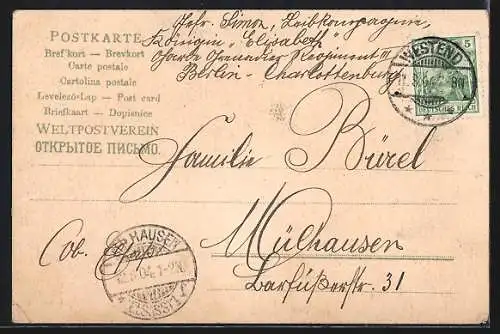 POSTKARTE
Bref'kort — Brevkort
Carte postale
Cartolina postale
Levelező-Lap — Post card
Briefkaart — Dopisnice
WELTPOSTVEREIN
ОТКРЫТОЕ ПИСЬМО.
Gefr. Simon, Leibkompagnie,
Königin „Elisabeth"
Garde Grenadier Regiment III
Berlin - Charlottenburg
WESTEND
5
Familie Bürel
Mülhausen
Barfüßerstr. 31
Cob.
HAUSEN
04. 1-2N
(ELSASS)